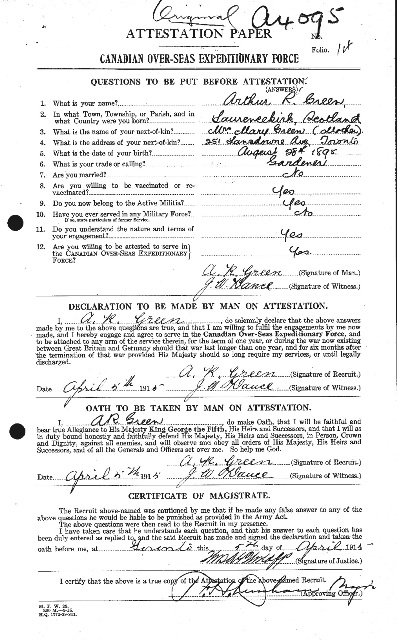 Original A4095
ATTESTATION PAPER
No.
Folio. 1st
CANADIAN OVER-SEAS EXPEDITIONARY FORCE
QUESTIONS TO BE PUT BEFORE ATTESTATION.
(ANSWERS)
1. What is your name? Arthur R. Green
2. In what Town, Township, or Parish, and in
what Country were you born? Laurencekirk, Scotland
3. What is the name of your next-of-kin? Mrs Mary Green (Mother)
4. What is the address of your next-of-kin? 251 Lansdowne Ave, Toronto
5. What is the date of your birth? August 28th 1895
6. What is your trade or calling? Gardener
7. Are you married? No
8. Are you willing to be vaccinated or re-
vaccinated? Yes
9. Do you now belong to the Active Militia? Yes
10. Have you ever served in any Military Force? No
If so, state particulars of former Service.
11. Do you understand the nature and terms of
your engagement? Yes
12. Are you willing to be attested to serve in the
CANADIAN OVER-SEAS EXPEDITIONARY
FORCE? Yes
A. R. Green (Signature of Man.)
(Signature of Witness.)
DECLARATION TO BE MADE BY MAN ON ATTESTATION.
I, A. R. Green, do solemnly declare that the above answers
made by me to the above questions are true, and that I am willing to fulfil the engagements by me now
made, and I hereby engage and agree to serve in the Canadian Over-Seas Expeditionary Force, and
to be attached to any arm of the service therein, for the term of one year, or during the war now existing
between Great Britain and Germany should that war last longer than one year, and for six months after
the termination of that war provided His Majesty should so long require my services, or until legally
discharged.
A. R. Green (Signature of Recruit.)
Date April 5th 1915 (Signature of Witness.)
OATH TO BE TAKEN BY MAN ON ATTESTATION.
I, A R Green, do make Oath, that I will be faithful and
bear true Allegiance to His Majesty King George the Fifth, His Heirs and Successors, and that I will as
in duty bound honestly and faithfully defend His Majesty, His Heirs and Successors, in Person, Crown
and Dignity, against all enemies, and will observe and obey all orders of His Majesty, His Heirs and
Successors, and of all the Generals and Officers set over me. So help me God.
A. R. Green (Signature of Recruit.)
Date April 5th 1915 (Signature of Witness.)
CERTIFICATE OF MAGISTRATE.
The Recruit above-named was cautioned by me that if he made any false answer to any of the
above questions he would be liable to be punished as provided in the Army Act.
The above questions were then read to the Recruit in my presence.
I have taken care that he understands each question, and that his answer to each question has
been duly entered as replied to, and the said Recruit has made and signed the declaration and taken the
oath before me, at Toronto this 5th day of April 1915
(Signature of Justice.)
I certify that the above is a true copy of the Attestation of the above-named Recruit.
(Approving Officer.)